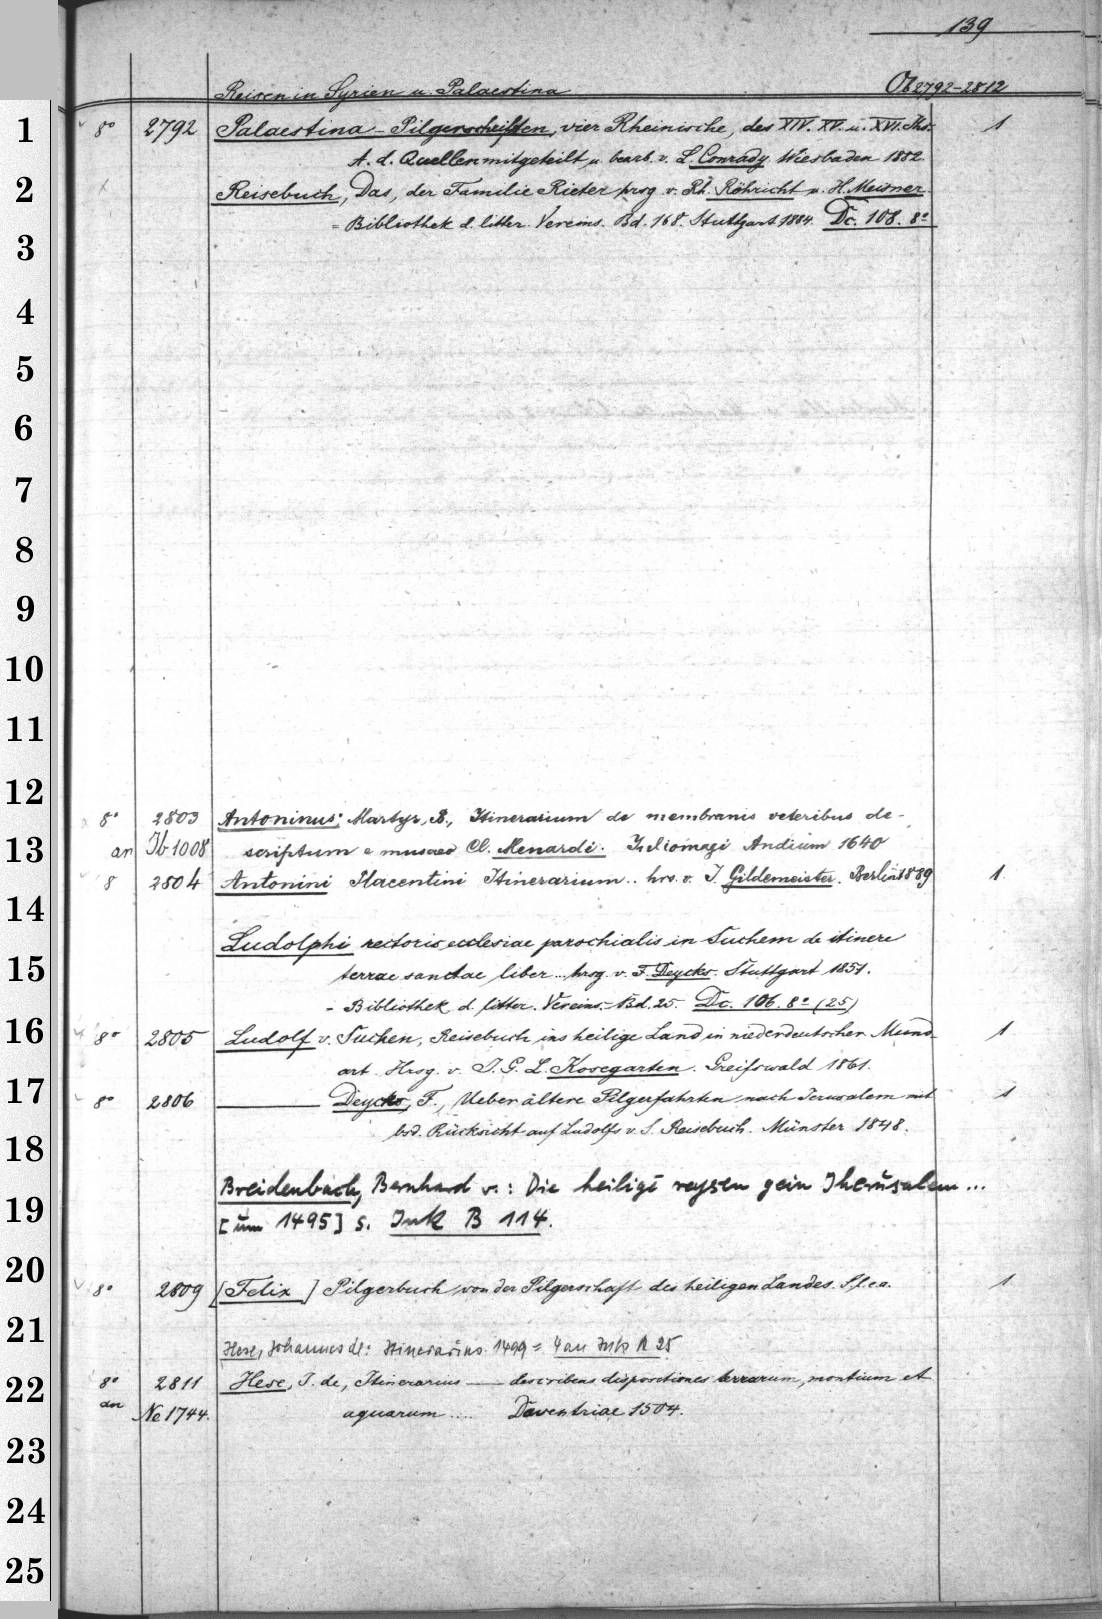 139
Reisen in Syrien u. Palaestina Ob 2792-2812
1 8° 2792 Palaestina - Pilgerschriften, vier Rheinische, des XIV. XV. u. XVI. Jhs. 1
A. d. Quellen mitgeteilt u. bearb. v. L. Conrady. Wiesbaden 1882.
2 Reisebuch, Das, der Familie Rieter hrsg v. Rh. Röhricht u. H. Meisner.
= Bibliothek d. litter. Vereins. Bd. 168. Stuttgart 1884. Dc. 108. 8°
3
4
5
6
7
8
9
10
11
12
8° 2803 Antoninus; Martyr, B., Itinerarium de membranis veteribus de-
13 an Jb 1008 scriptum e musaeo Cl. Menardi. Juliomagi Andium 1640
8 2804 Antonini Placentini Itinerarium.. hrs. v. J. Gildemeister. Berlin 1889 1
14
Ludolphi rectoris ecclesiae parochialis in Suchem de itinere
15 terrae sanctae liber... hrsg. v. F. Deycks. Stuttgart 1851.
- Bibliothek d. litter. Vereins.- Bd. 25. Dc. 106. 8° (25)
16 8° 2805 Ludolf v. Suchen, Reisebuch ins heilige Land in niederdeutscher Mund- 1
art. Hrsg. v. J. G. L. Kosegarten. Greifswald 1861.
17 8° 2806 Deycks, F., Ueber ältere Pilgerfahrten nach Jerusalem mit 1
bsd. Rücksicht auf Ludolfs v. S. Reisebuch. Münster 1848.
18
Breidenbach, Bernhard v.: Die heiligē reysen gein Jherusalem...
19 [um 1495] s. Ink B 114.
20 8° 2809 [Felix] Pilgerbuch von der Pilgerschaft des heiligen Landes. S. l. e a. 1
21 Hese, Johannes de: Itinerarius. 1499 = 4 an Ink R 25
22 8° 2811 Hese, J. de, Itinerarius — describens dispositiones terrarum, montium et
an Ne 1744. aquarum .... Daventriae 1504.
23
24
25